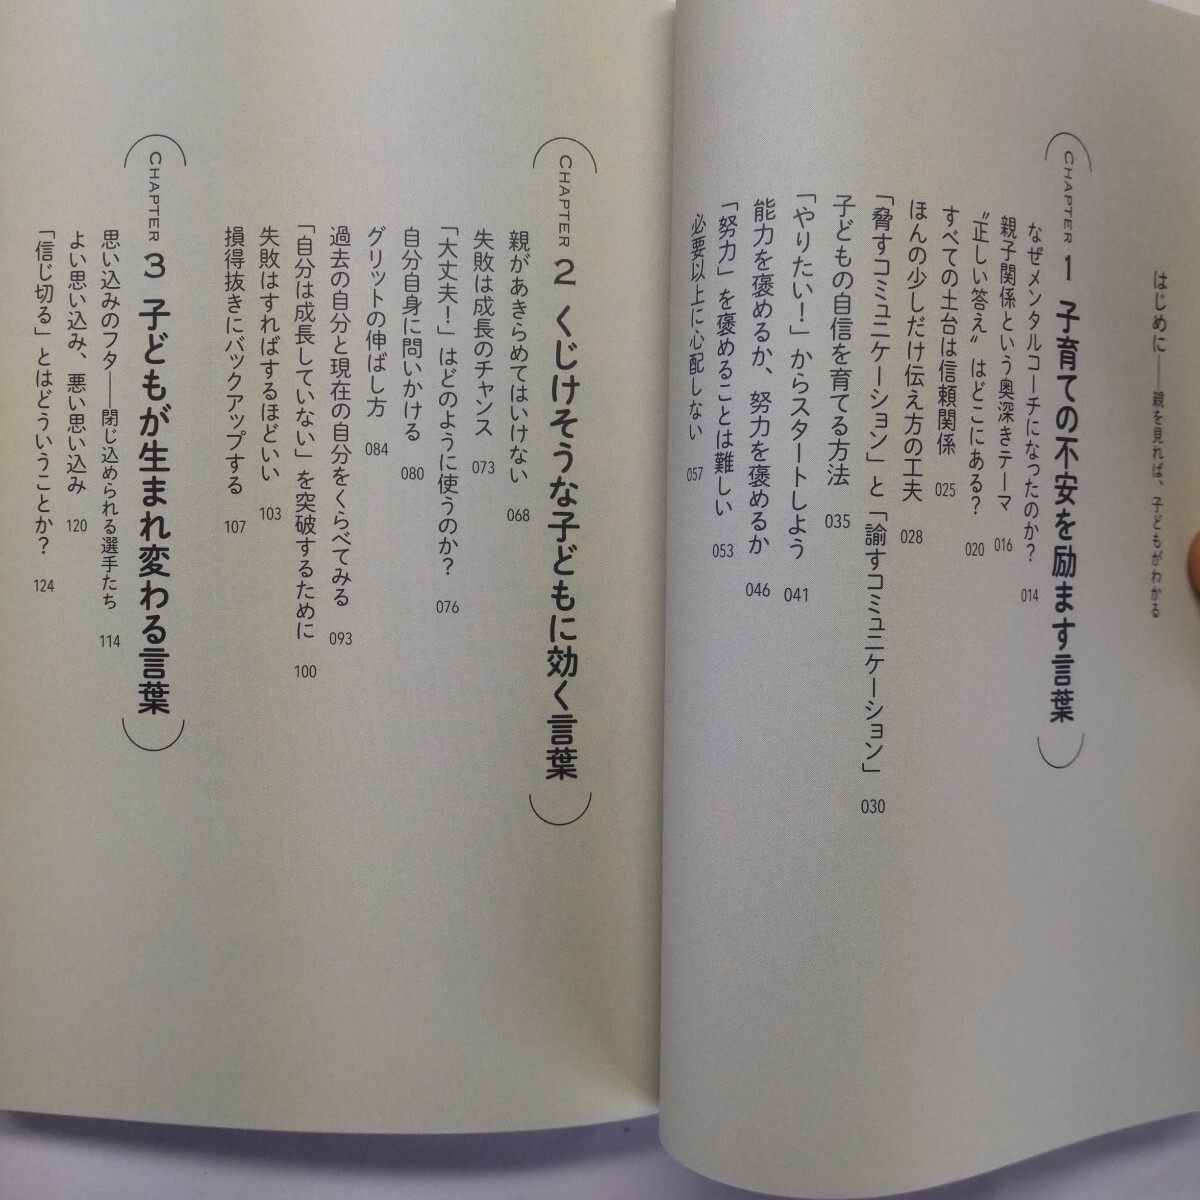 はじめに――親を見れば、子どもがわかる
CHAPTER 1 子育ての不安を励ます言葉
なぜメンタルコーチになったのか? 014
親子関係という奥深きテーマ 016
〝正しい答え〟はどこにある? 020
すべての土台は信頼関係 025
ほんの少しだけ伝え方の工夫 028
「脅すコミュニケーション」と「諭すコミュニケーション」 030
子どもの自信を育てる方法 035
「やりたい!」からスタートしよう 041
能力を褒めるか、努力を褒めるか 046
「努力」を褒めることは難しい 053
必要以上に心配しない 057
CHAPTER 2 くじけそうな子どもに効く言葉
親があきらめてはいけない 068
失敗は成長のチャンス 073
「大丈夫!」はどのように使うのか? 076
自分自身に問いかける 080
グリットの伸ばし方 084
過去の自分と現在の自分をくらべてみる 093
「自分は成長していない」を突破するために 100
失敗はすればするほどいい 103
損得抜きにバックアップする 107
CHAPTER 3 子どもが生まれ変わる言葉
思い込みのフタ――閉じ込められる選手たち 114
よい思い込み、悪い思い込み 120
「信じ切る」とはどういうことか? 124